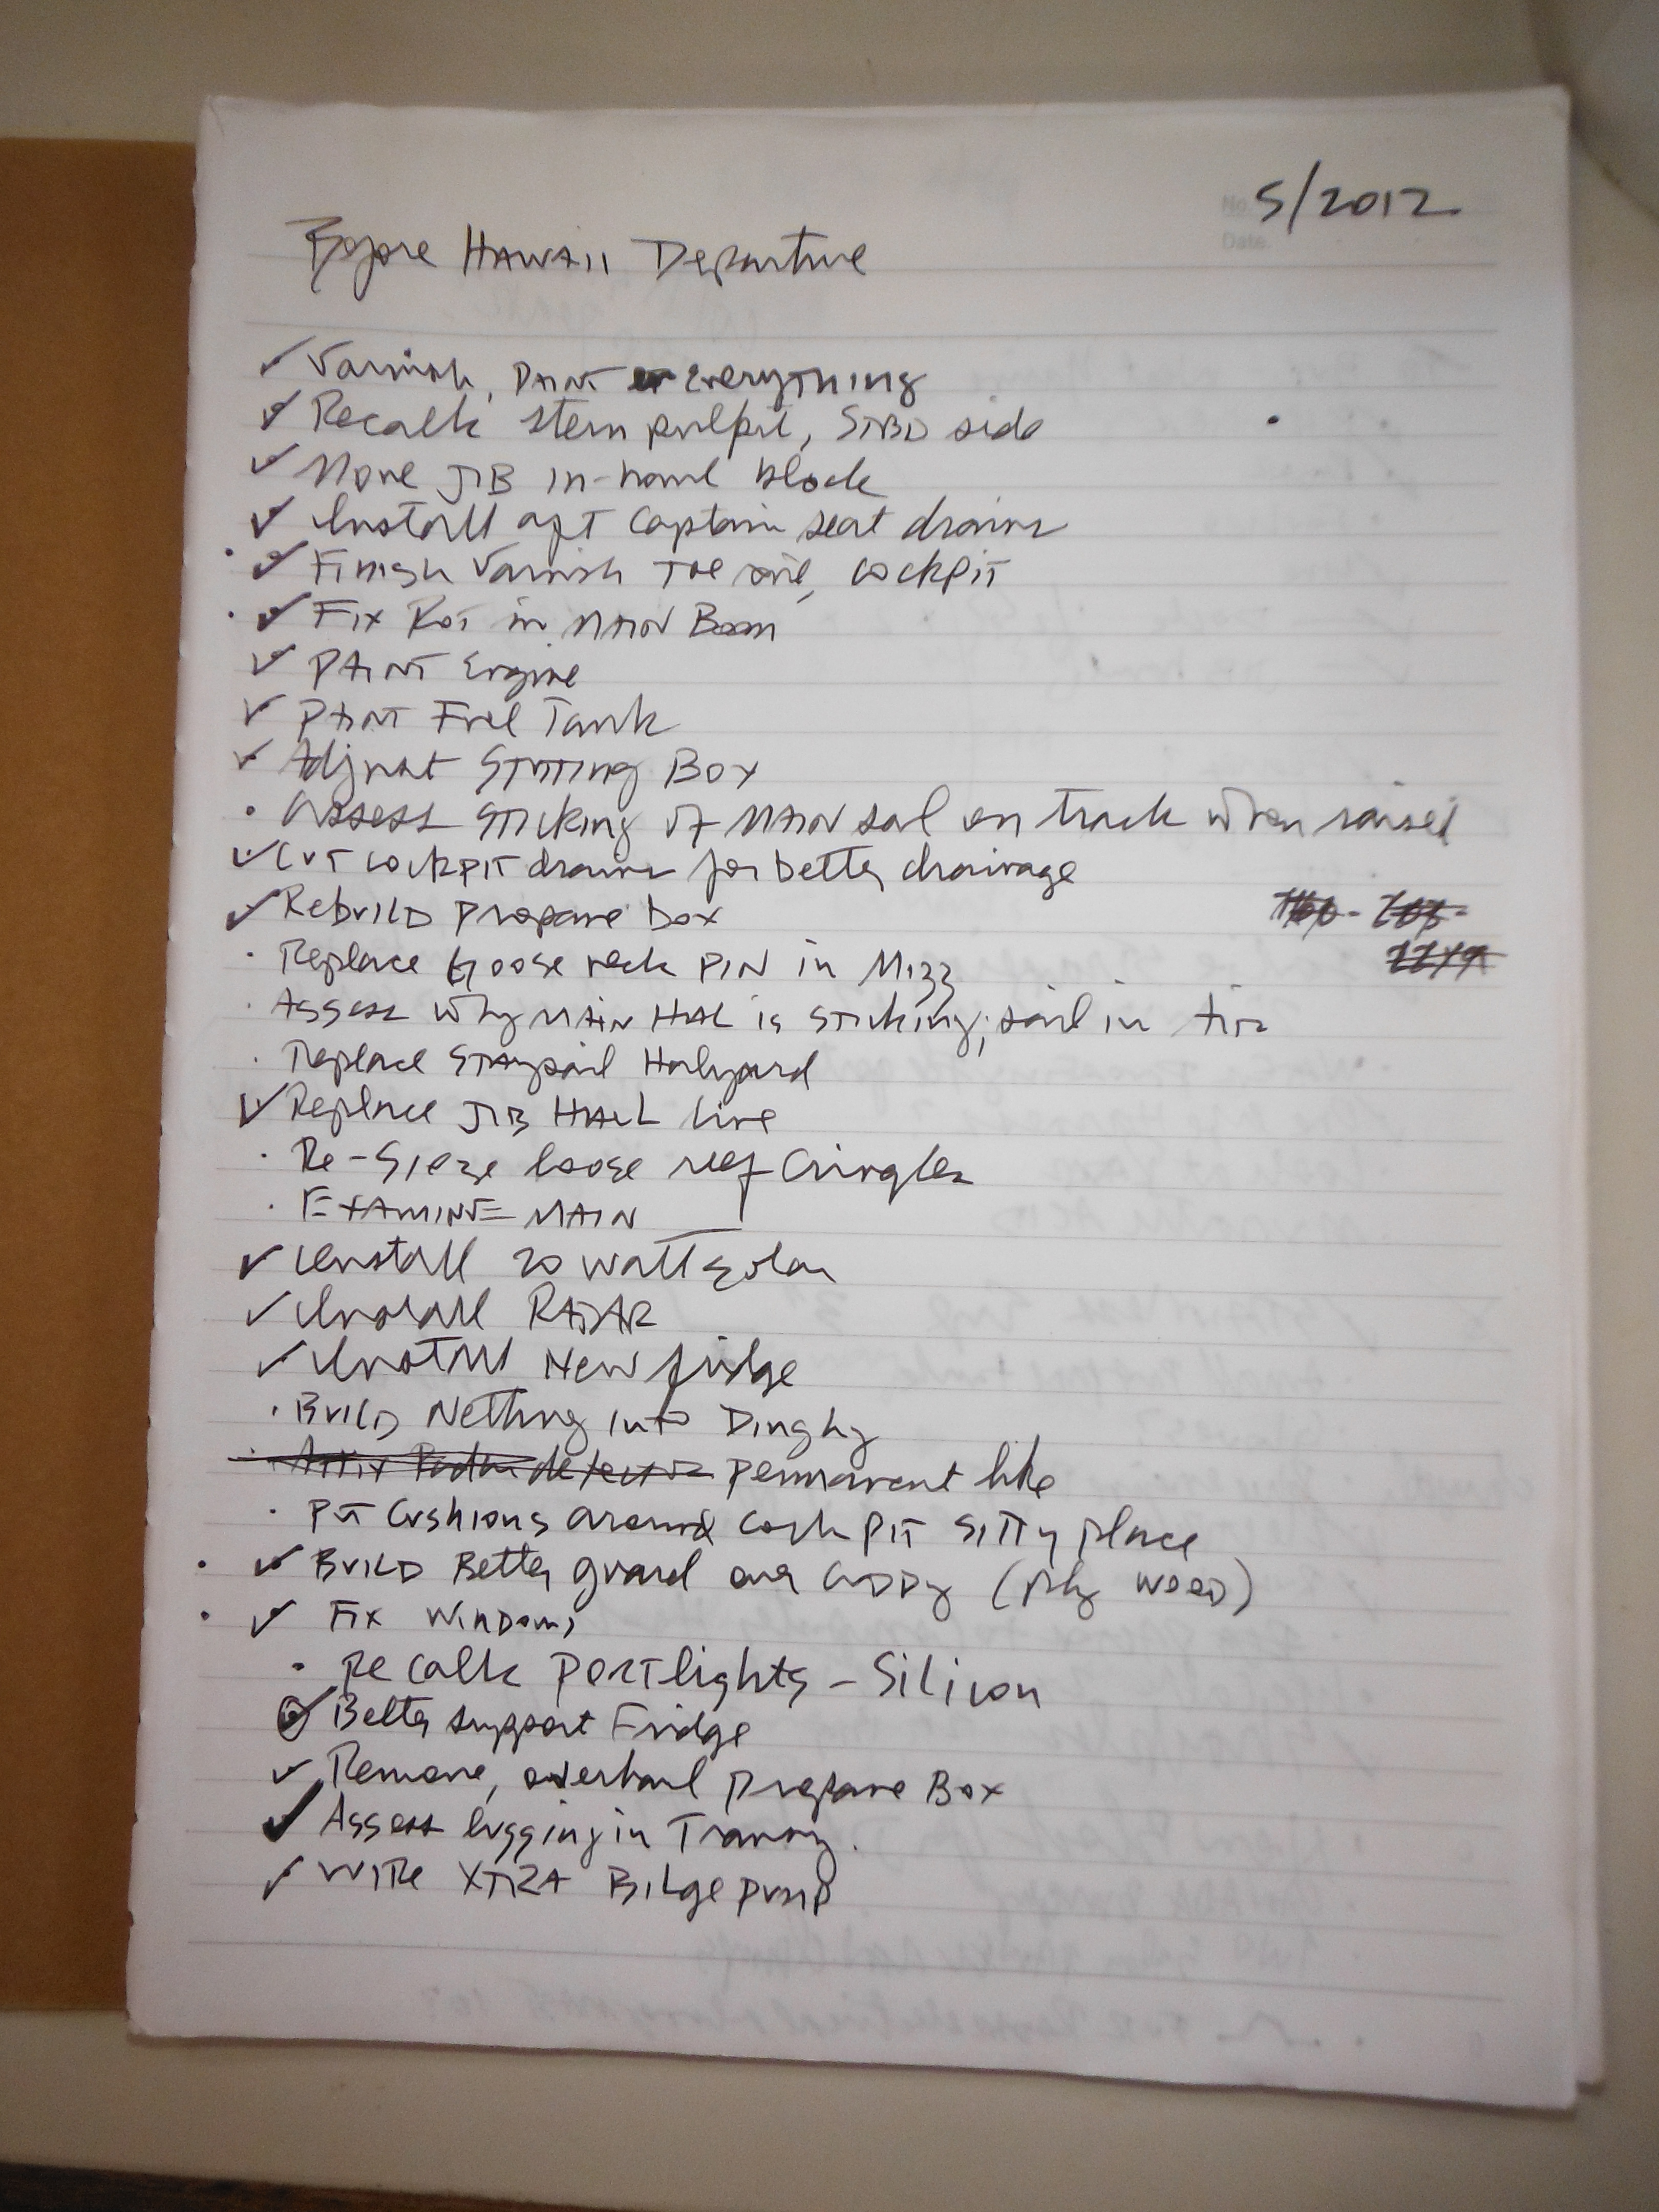 No. 5/2012
Date.
Before HAWAII Departure
✓ Varnish, PAINT everything
✓ Recalk stern pulpit, STBD side
✓ Move JIB in-haul block
✓ Install aft Captain seat drains
✓ Finish Varnish Toe rail, cockpit
✓ Fix Rot in MAIN Boom
✓ PAINT Engine
✓ PAINT Fuel Tank
✓ Adjust Stuffing Box
• Assess sticking of MAIN sail on track when raised
✓ Cut cockpit drains for better drainage
✓ Rebuild propane box
• Replace Goose neck PIN in Mizz
• Assess why MAIN HAL is sticking; sail in
• Replace Staysail Halyard
✓ Replace JIB HAUL line
• Re-Sieze loose reef Cringles
• EXAMINE MAIN
✓ Install 20 watt solar
✓ Install RADAR
✓ Install New fridge
• Build Netting into Dinghy
• Affix Radar detector permanent like
• Put Cushions around cockpit sitty place
• ✓ Build Better guard over Cuddy (ply wood)
• ✓ Fix Windows
• Recalk Portlights - Silicon
✓ Better support Fridge
✓ Remove, overhaul propane Box
✓ Assess lugging in Tranny.
✓ Wire XTRA Bilge pump